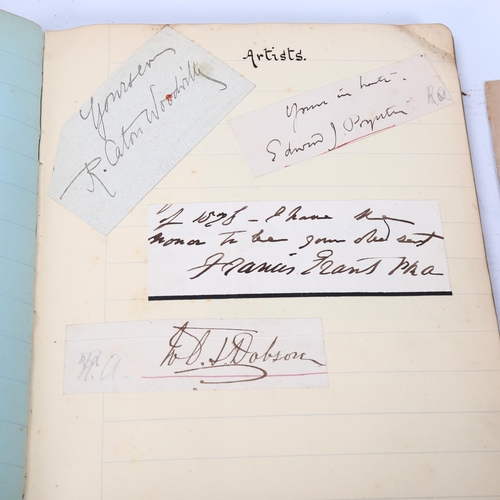 Artists.
Yours ever
R. Caton Woodville
Yours in haste.
Edward J. Poynter
RA
of 1878 - I have the
honor to be your obed sert
Francis Grant PRA
W. C. T. Dobson
R.A.